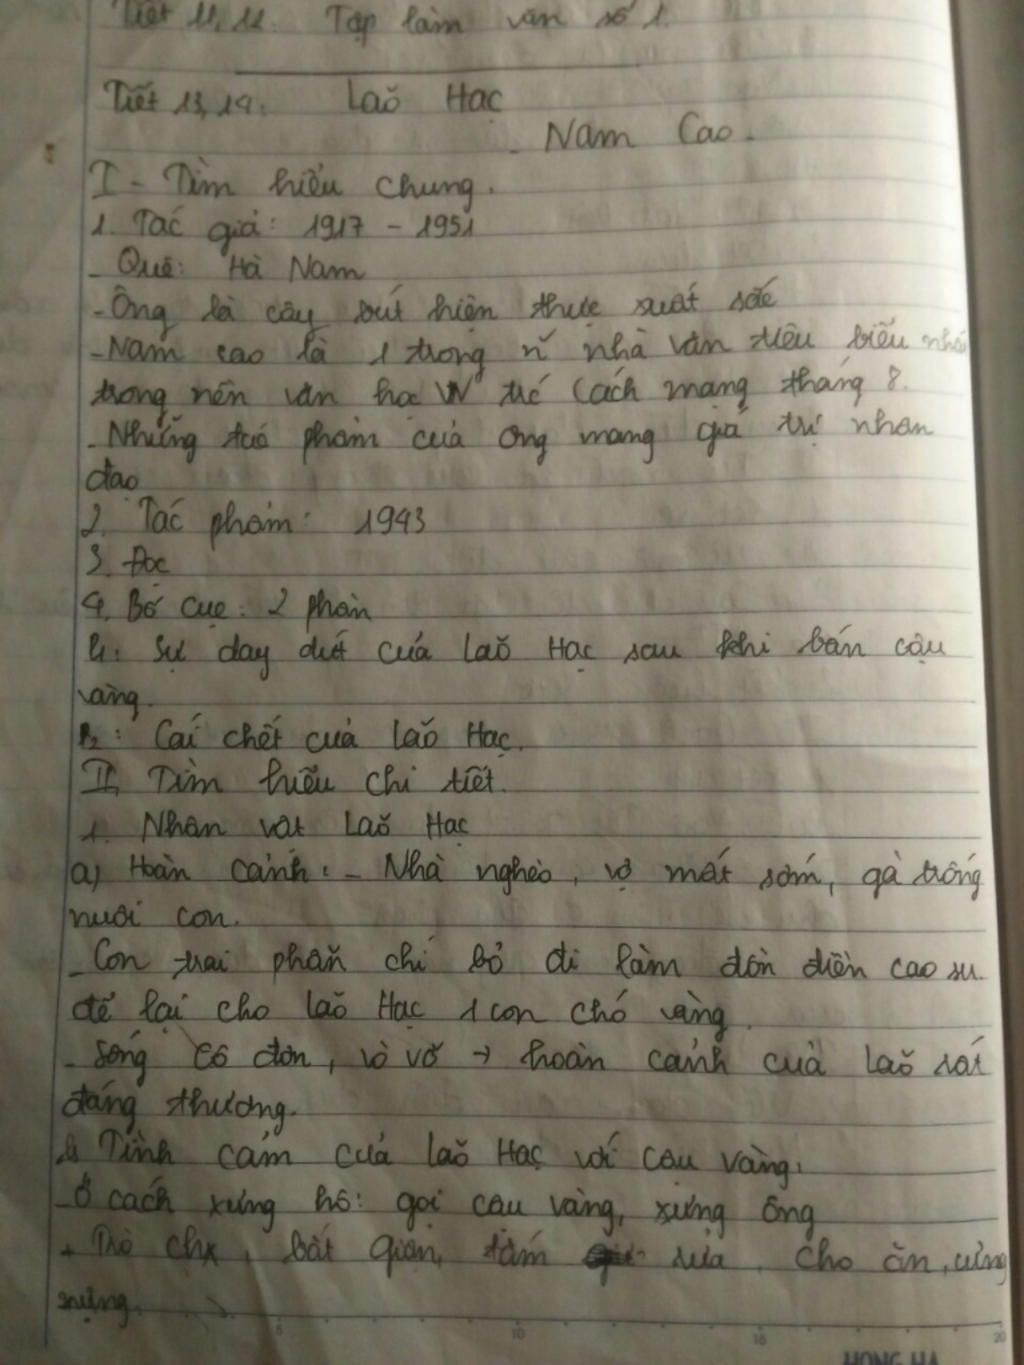 Tiết 11, 12. Tập làm văn số 1.
Tiết 13, 14: Laõ Hạc
- Nam Cao.
I - Tìm hiểu chung.
1. Tác giả: 1917 - 1951
- Quê: Hà Nam
- Ông là cây bút hiện thực xuất sắc
- Nam cao là 1 trong n~ nhà văn tiêu biểu nhất
trong nền văn học VN trc Cách mạng tháng 8.
- Những tác phẩm của ông mang giá trị nhân
đạo
2. Tác phẩm: 1943
3. Đọc
4. Bố cục: 2 phần
P1: Sự day dứt của Laõ Hạc sau khi bán cậu
vàng.
P2: Cái chết của laõ Hạc.
II, Tìm hiểu chi tiết.
1. Nhân vật Laõ Hạc
a) Hoàn cảnh: - Nhà nghèo, vợ mất sớm, gà trống
nuôi con.
- Con trai phẫn chí bỏ đi làm đồn điền cao su.
để lại cho laõ Hạc 1 con chó vàng.
- Sống cô đơn, vò võ → hoàn cảnh của laõ rất
đáng thương.
b, Tình cảm của laõ Hạc với cậu vàng.
- Ở cách xưng hô: gọi cậu vàng, xưng ông
+ Trò chx, bắt giận, tắm rửa, cho ăn, cưng
nựng.
5 10 15 20
HONG HA